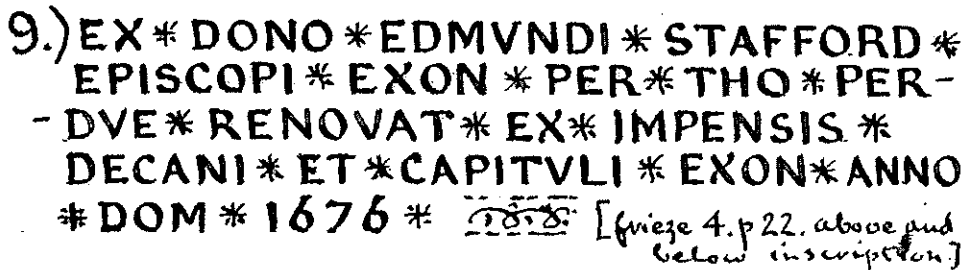 9.) EX * DONO * EDMVNDI * STAFFORD *
EPISCOPI * EXON * PER * THO * PER-
- DVE * RENOVAT * EX * IMPENSIS *
DECANI * ET * CAPITVLI * EXON * ANNO
* DOM * 1676 * [frieze 4. p 22. above and
below inscription.]